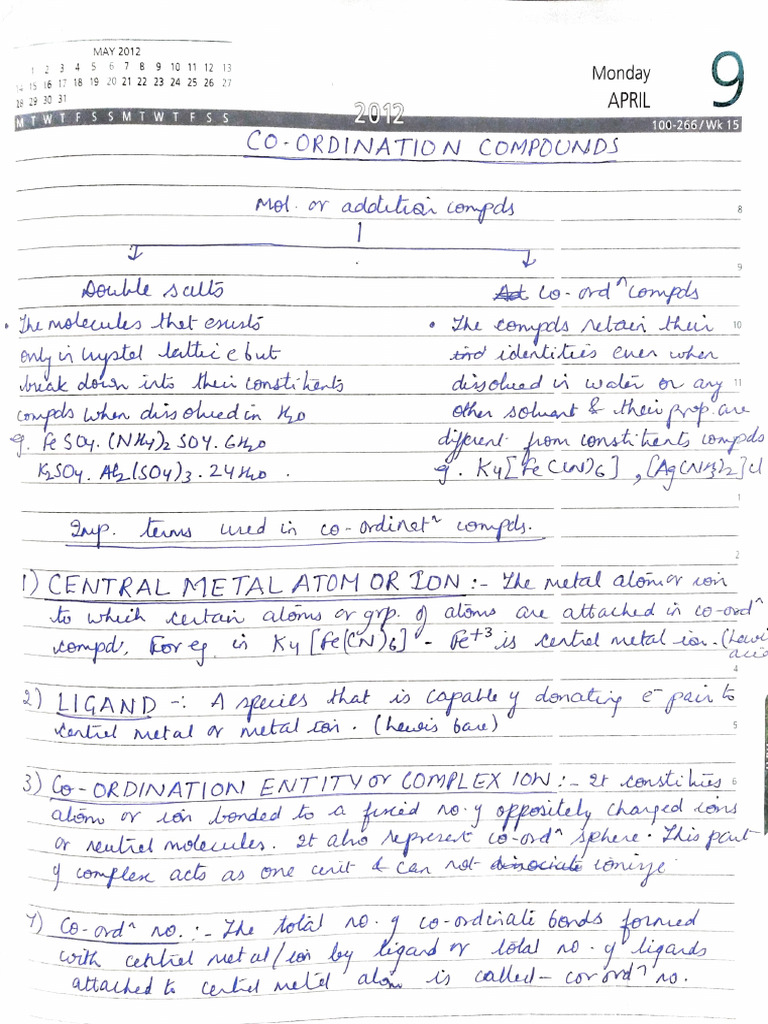 MAY 2012
1 2 3 4 5 6 7 8 9 10 11 12 13
14 15 16 17 18 19 20 21 22 23 24 25 26 27
28 29 30 31
M T W T F S S M T W T F S S
2012
Monday
APRIL
9
100-266/Wk 15
CO-ORDINATION COMPOUNDS
Mol. or addition compds
8
9
Double salts
• The molecules that exists
only in crystal lattice but
break down into their constituents
compds when dissolved in H2O
eg. FeSO4.(NH4)2SO4.6H2O
K2SO4.Al2(SO4)3.24H2O.
Ad Co-ord^n compds
• The compds retain their 10
ind identities even when
dissolved in water or any 11
other solvent & their prop. are
different from constituents compds
eg. K4[Fe(CN)6], [Ag(NH3)2]Cl
1
Imp. terms used in co-ordinat^n compds.
2
1) CENTRAL METAL ATOM OR ION :- The metal atom or ion
to which certain atoms or grp. of atoms are attached in co-ord^n
compd. For eg. in K4[Fe(CN)6] - Fe+3 is central metal ion. (Lewis acid
4
2) LIGAND -: A species that is capable of donating e- pair to
central metal or metal ion. (Lewis base)
5
3) CO-ORDINATION ENTITY or COMPLEX ION :- It constitutes
6
atom or ion bonded to a fixed no. of oppositely charged ions
or neutral molecules. It also represent co-ord^n sphere. This part
of complex acts as one unit & can not dissociate ionize.
4) Co-ord^n no. :- The total no. of co-ordinate bonds formed
with central metal/ion by ligand or total no. of ligands
attached to central metal atom is called - cor ord^n no.